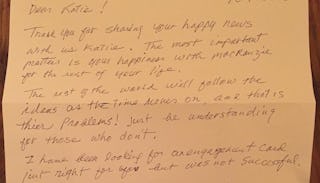 Dear Katie!
Thank you for sharing your happy news
with us Katie. The most important
matter is your happiness with macKenzie
for the rest of your life.
The rest of the world will follow the
ideas as the time moves on and that is
thier problems! Just be understanding
for those who don't.
I have been looking for an engagement card
just right for you but was not successful.